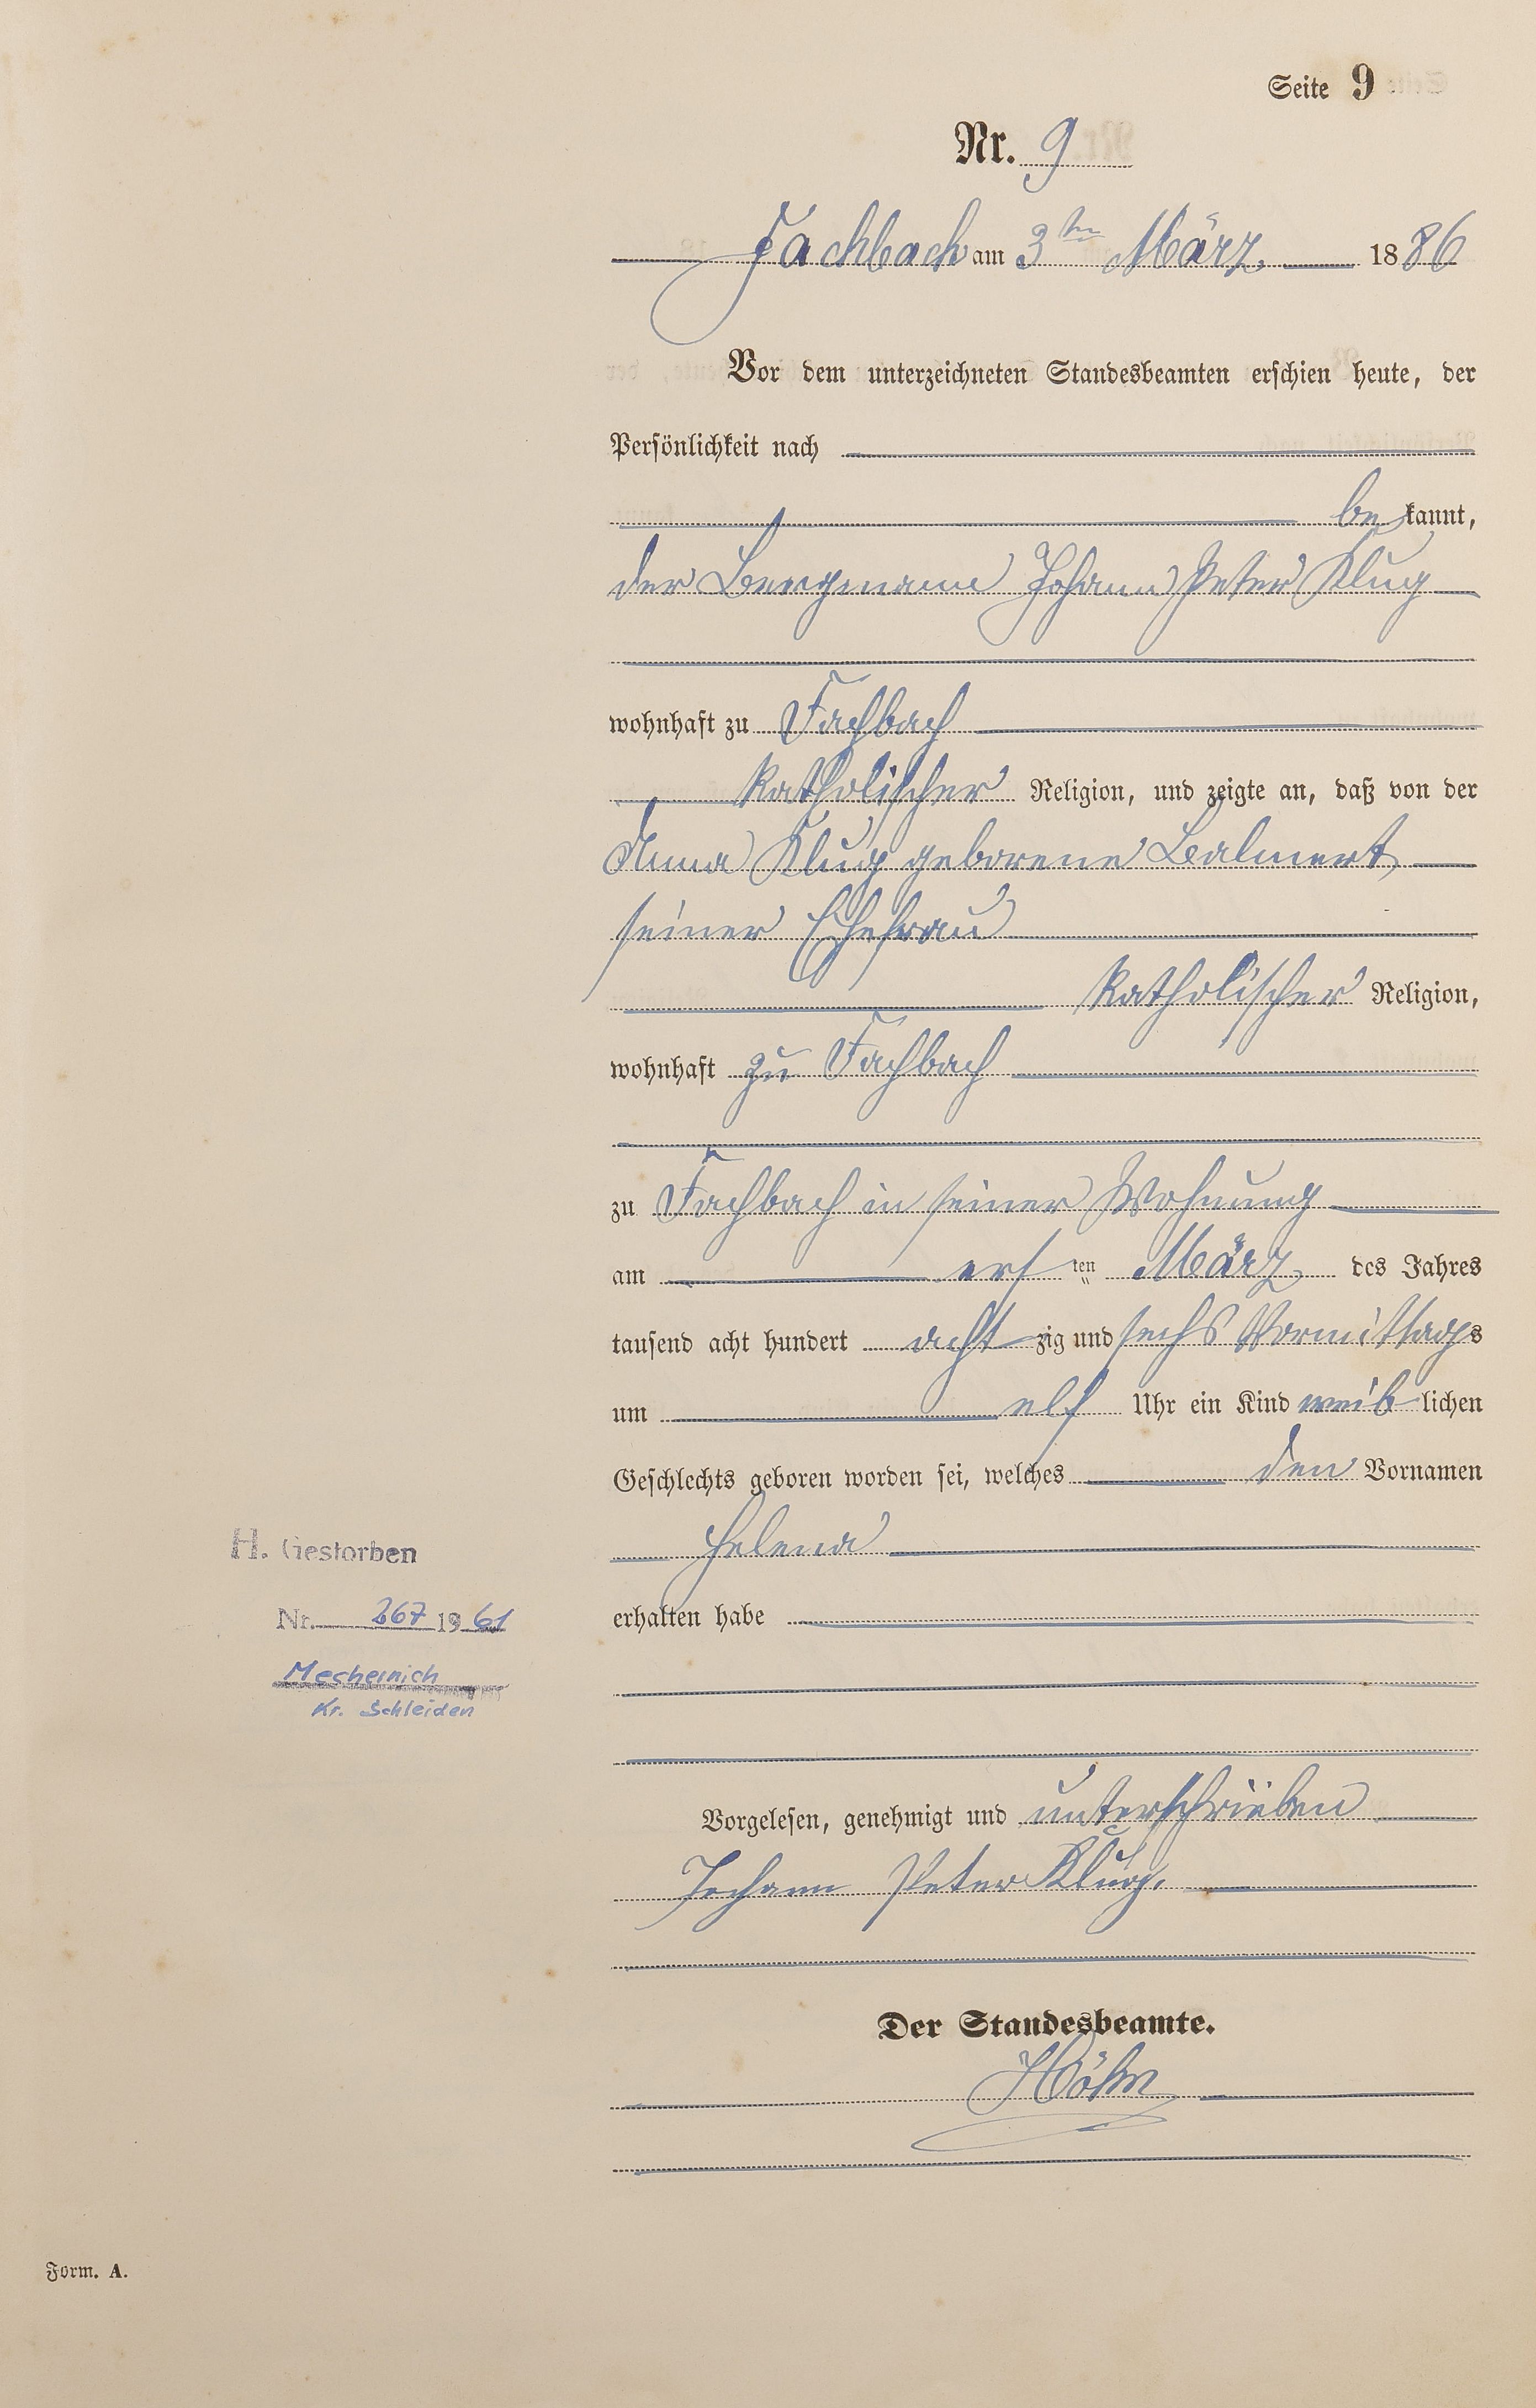 Seite 9
Nr. 9
Fachbach am 3ten März 1886
Vor dem unterzeichneten Standesbeamten erschien heute, der
Persönlichkeit nach
be kannt,
der Bergmann Johann Peter Klug
wohnhaft zu Fachbach
katholischer Religion, und zeigte an, daß von der
Anna Klug geborene Balmert
seiner Ehefrau
katholischer Religion,
wohnhaft zu Fachbach
zu Fachbach in seiner Wohnung
am ersten März des Jahres
tausend acht hundert achtzig und sechs Vormittags
um elf Uhr ein Kind weiblichen
Geschlechts geboren worden sei, welches den Vornamen
Helena
erhalten habe
H. Gestorben
Nr. 267 1961
Mechernich
Kr. Schleiden
Vorgelesen, genehmigt und unterschrieben
Johann Peter Klug.
Der Standesbeamte.
Höhn
Form. A.